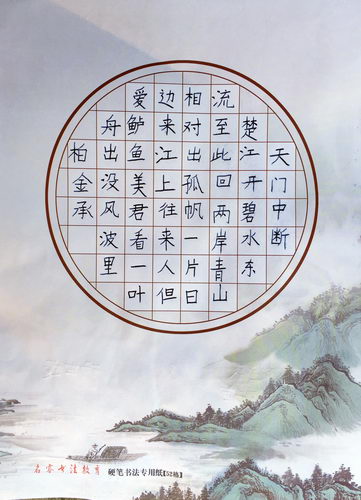 天门中断
楚江开碧水东
流至此回两岸青山
相对出孤帆一片日
边来江上往来人但
爱鲈鱼美君看一叶
舟出没风波里
柏金承
名家书法教育 硬笔书法专用纸[52格]